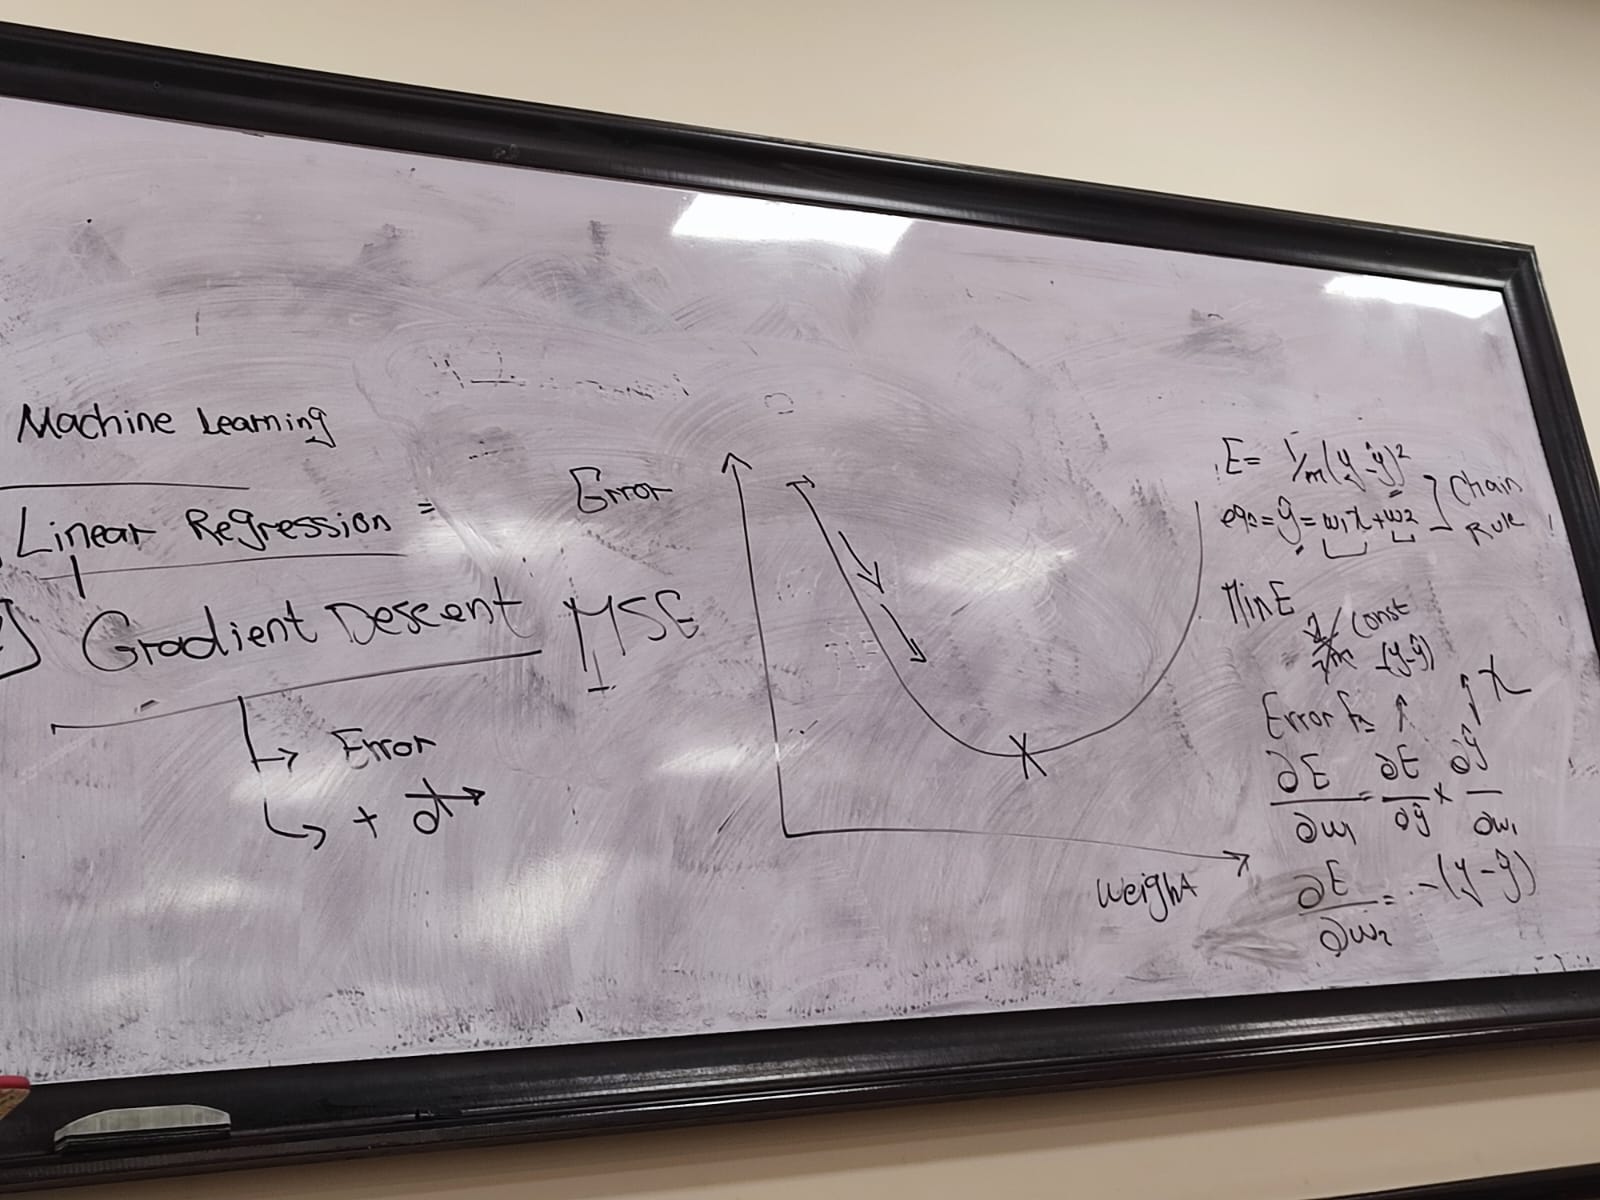 Machine Learning
Linear Regression =
Gradient Descent
→ Error
→ +
Error
MSE
Weight
E = 1/m (y - ŷ)²
eqn = ŷ = w₁x + w₂
Chain
Rule
Min E
Const
-(y-ŷ)
x
Error
∂E/∂w₁ = ∂E/∂ŷ × ∂ŷ/∂w₁
∂E/∂w₂ = -(y - ŷ)